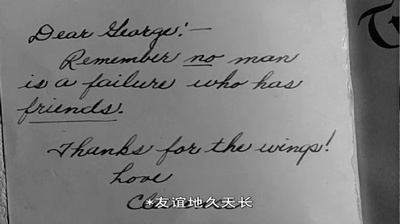 Dear George:—
Remember no man
is a failure who has
friends.
Thanks for the wings!
Love
*友谊地久天长